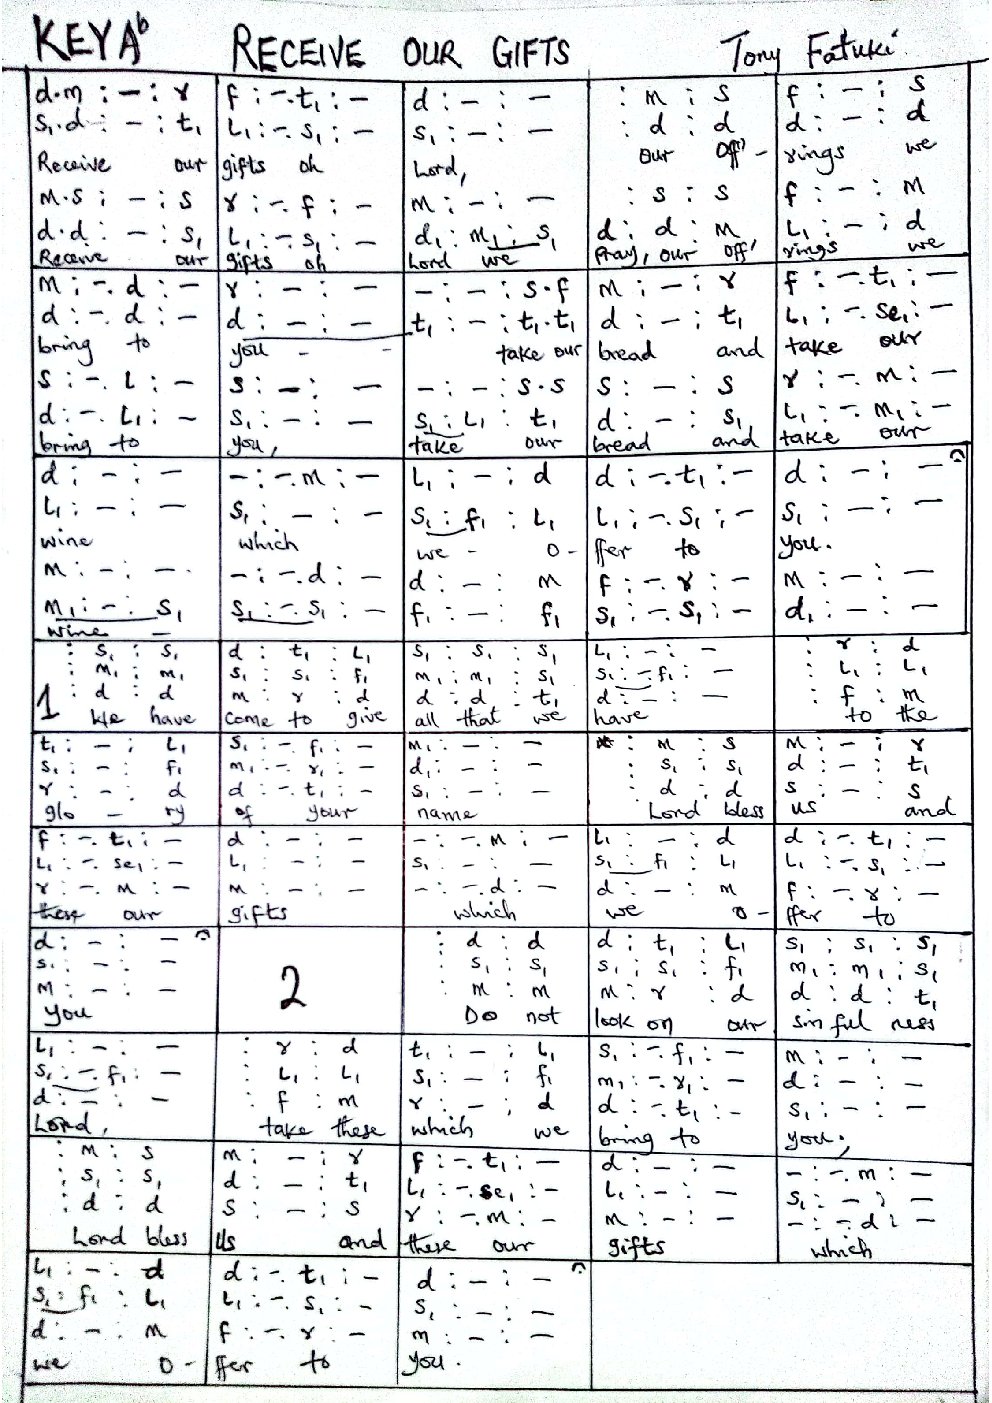 KEY Aᵇ RECEIVE OUR GIFTS Tony Fatuki
d.m : – : r | f : –.t₁ : – | d : – : – | : m : s | f : – : s
s₁.d : – : t₁ | L₁ : –.s₁ : – | s₁ : – : – | : d : d | d : – : d
Receive our | gifts oh | Lord, | our Off'– | rings we
m.s : – : s | r : –.f : – | m : – : – | : s : s | f : – : m
d.d : – : s₁ | L₁ : –.s₁ : – | d₁ : m₁ : s₁ | d : d : m | L₁ : – : d
Receive our | gifts oh | Lord we | Pray, our off' | rings we
m : –.d : – | r : – : – | – : – : s.f | m : – : r | f : –.t₁ : –
d : –.d : – | d : – : – | t₁ : – : t₁.t₁ | d : – : t₁ | L₁ : –.se₁ : –
bring to | you – – | take our | bread and | take our
s : –.L : – | s : – : – | – : – : s.s | s : – : s | r : –.m : –
d : –.L₁ : – | s₁ : – : – | s₁ : L₁ : t₁ | d : – : s₁ | L₁ : –.m₁ : –
bring to | you, | take our | bread and | take our
d : – : – | – : –.m : – | L₁ : – : d | d : –.t₁ : – | d : – : – 𝄐
L₁ : – : – | s₁ : – : – | s₁ : f₁ : L₁ | L₁ : –.s₁ : – | s₁ : – : –
wine | which | we – o– | ffer to | you.
m : – : – | – : –.d : – | d : – : m | f : –.r : – | m : – : –
m₁ : – : s₁ | s₁ : –.s₁ : – | f₁ : – : f₁ | s₁ : –.s₁ : – | d₁ : – : –
wine –
: s₁ : s₁ | d : t₁ : L₁ | s₁ : s₁ : s₁ | L₁ : – : – | : r : d
: m₁ : m₁ | s₁ : s₁ : f₁ | m₁ : m₁ : s₁ | s₁ : –.f₁ : – | : L₁ : L₁
1 : d : d | m : r : d | d : d : t₁ | d : – : – | : f : m
We have | come to give | all that we | have | to the
t₁ : – : L₁ | s₁ : –.f₁ : – | m₁ : – : – | : m : s | m : – : r
s₁ : – : f₁ | m₁ : –.r₁ : – | d₁ : – : – | : s₁ : s₁ | d : – : t₁
r : – : d | d : –.t₁ : – | s₁ : – : – | : d : d | s : – : s
glo – ry | of your | name | Lord bless | us and
f : –.t₁ : – | d : – : – | – : –.m : – | L₁ : – : d | d : –.t₁ : –
L₁ : –.se₁ : – | L₁ : – : – | s₁ : – : – | s₁ : f₁ : L₁ | L₁ : –.s₁ : –
r : –.m : – | m : – : – | – : –.d : – | d : – : m | f : –.r : –
these our | gifts | which | we o– | ffer to
d : – : – 𝄐 | | : d : d | d : t₁ : L₁ | s₁ : s₁ : s₁
s₁ : – : – | | : s₁ : s₁ | s₁ : s₁ : f₁ | m₁ : m₁ : s₁
m : – : – | 2 | : m : m | m : r : d | d : d : t₁
you | | Do not | look on our | sin ful ness
L₁ : – : – | : r : d | t₁ : – : L₁ | s₁ : –.f₁ : – | m : – : –
s₁ : –.f₁ : – | : L₁ : L₁ | s₁ : – : f₁ | m₁ : –.r₁ : – | d : – : –
d : – : – | : f : m | r : – : d | d : –.t₁ : – | s₁ : – : –
Lord, | take these | which we | bring to | you;
: m : s | m : – : r | f : –.t₁ : – | d : – : – | – : –.m : –
: s₁ : s₁ | d : – : t₁ | L₁ : –.se₁ : – | L₁ : – : – | s₁ : – : –
: d : d | s : – : s | r : –.m : – | m : – : – | – : –.d : –
Lord bless | us and | these our | gifts | which
L₁ : – : d | d : –.t₁ : – | d : – : – 𝄐
s₁ : f₁ : L₁ | L₁ : –.s₁ : – | s₁ : – : –
d : – : m | f : –.r : – | m : – : –
we o– | ffer to | you.